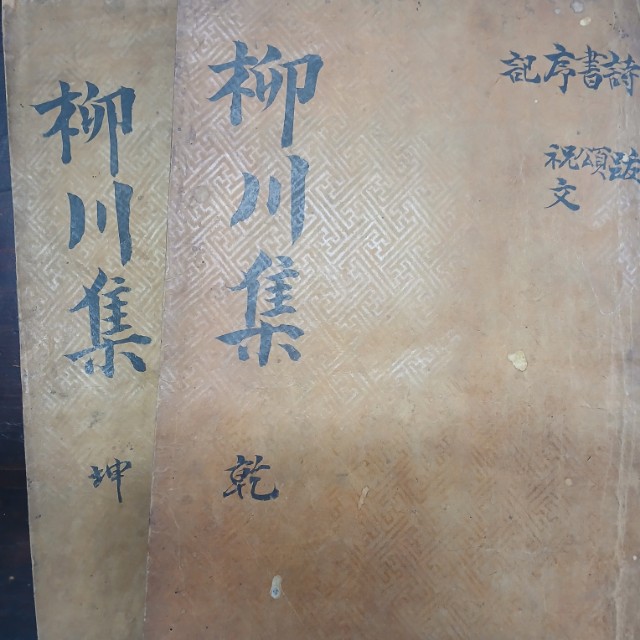 詩 跋
書 頌
序 祝文
記
柳川集 乾
柳川集 坤